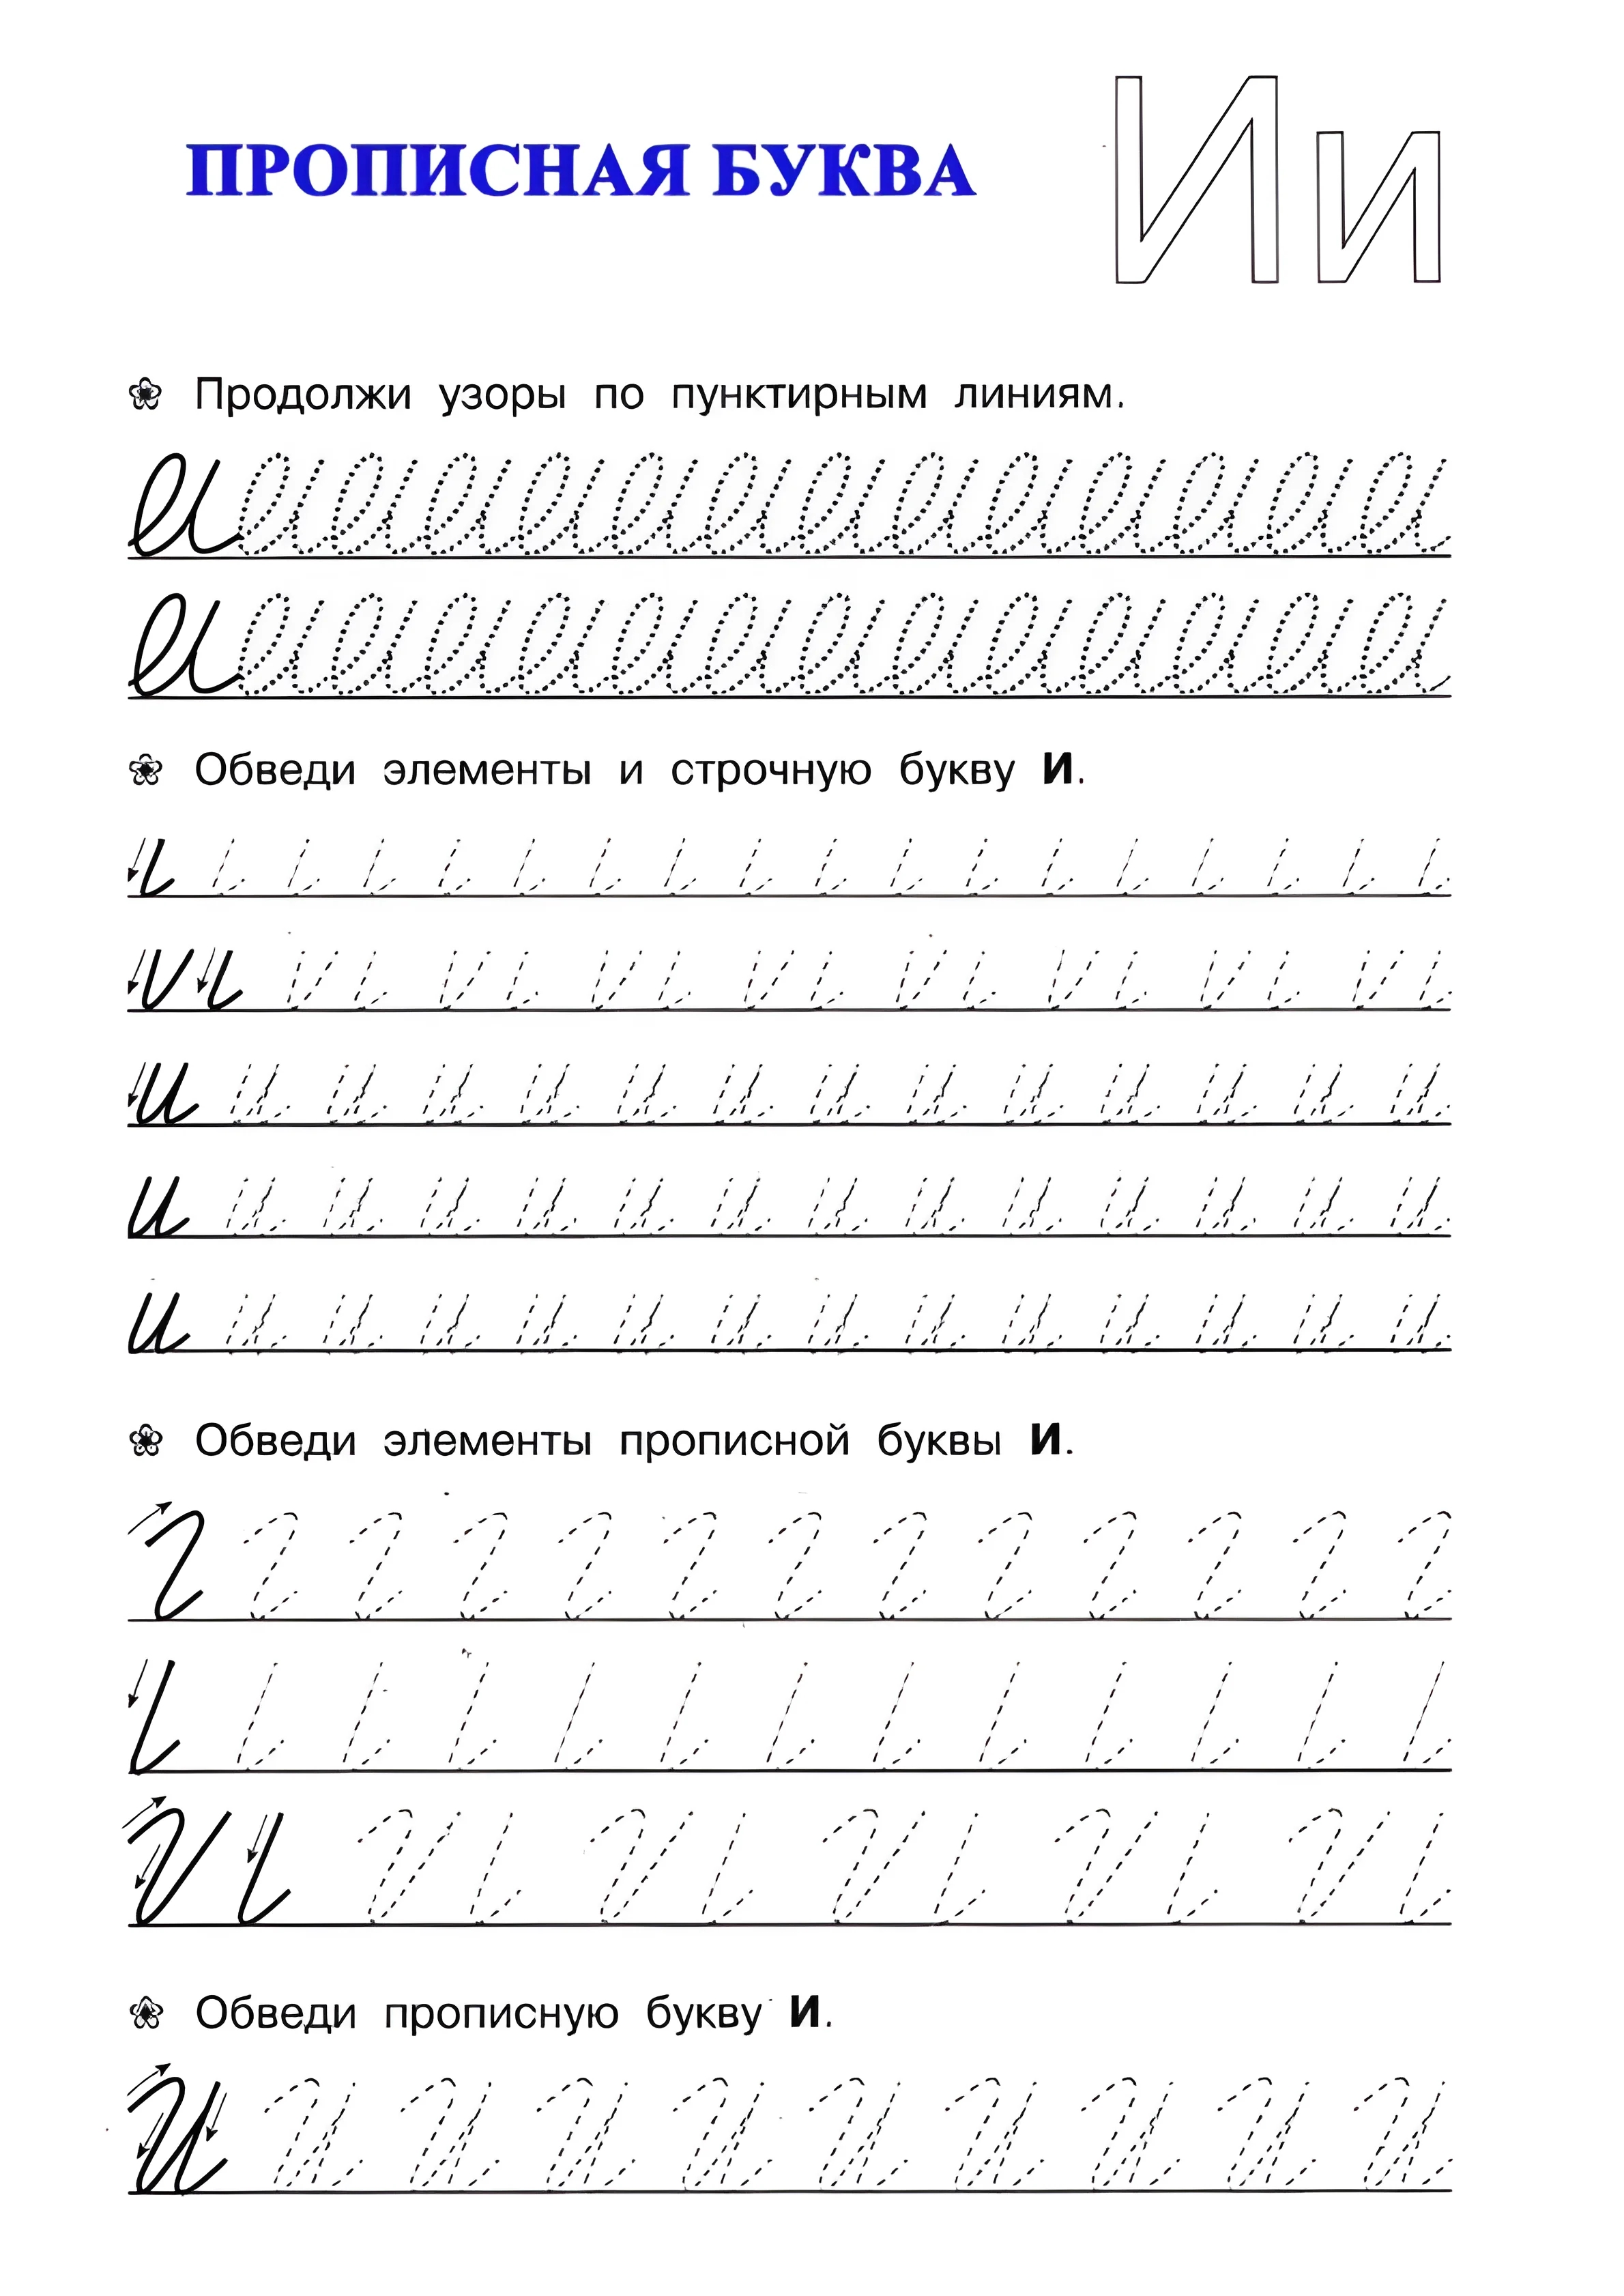 ПРОПИСНАЯ БУКВА
Ии
Продолжи узоры по пунктирным линиям.
Обведи элементы и строчную букву И.
и и и и и и и и и и и и и и
и и и и и и и и и и и и и и
и и и и и и и и и и и и и и
Обведи элементы прописной буквы И.
Обведи прописную букву И.
И И И И И И И И И И